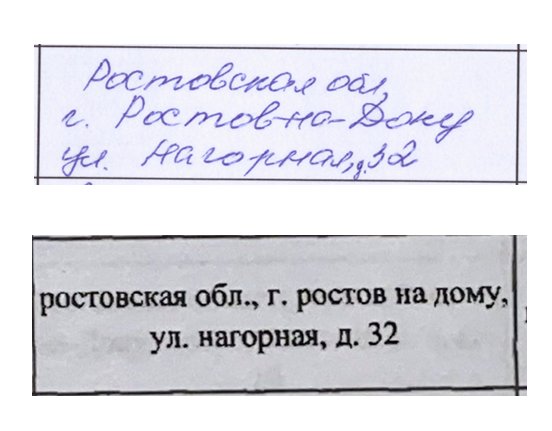 Ростовская обл,
г. Ростов-на-Дону
ул. Нагорная, д. 32
ростовская обл., г. ростов на дому,
ул. нагорная, д. 32